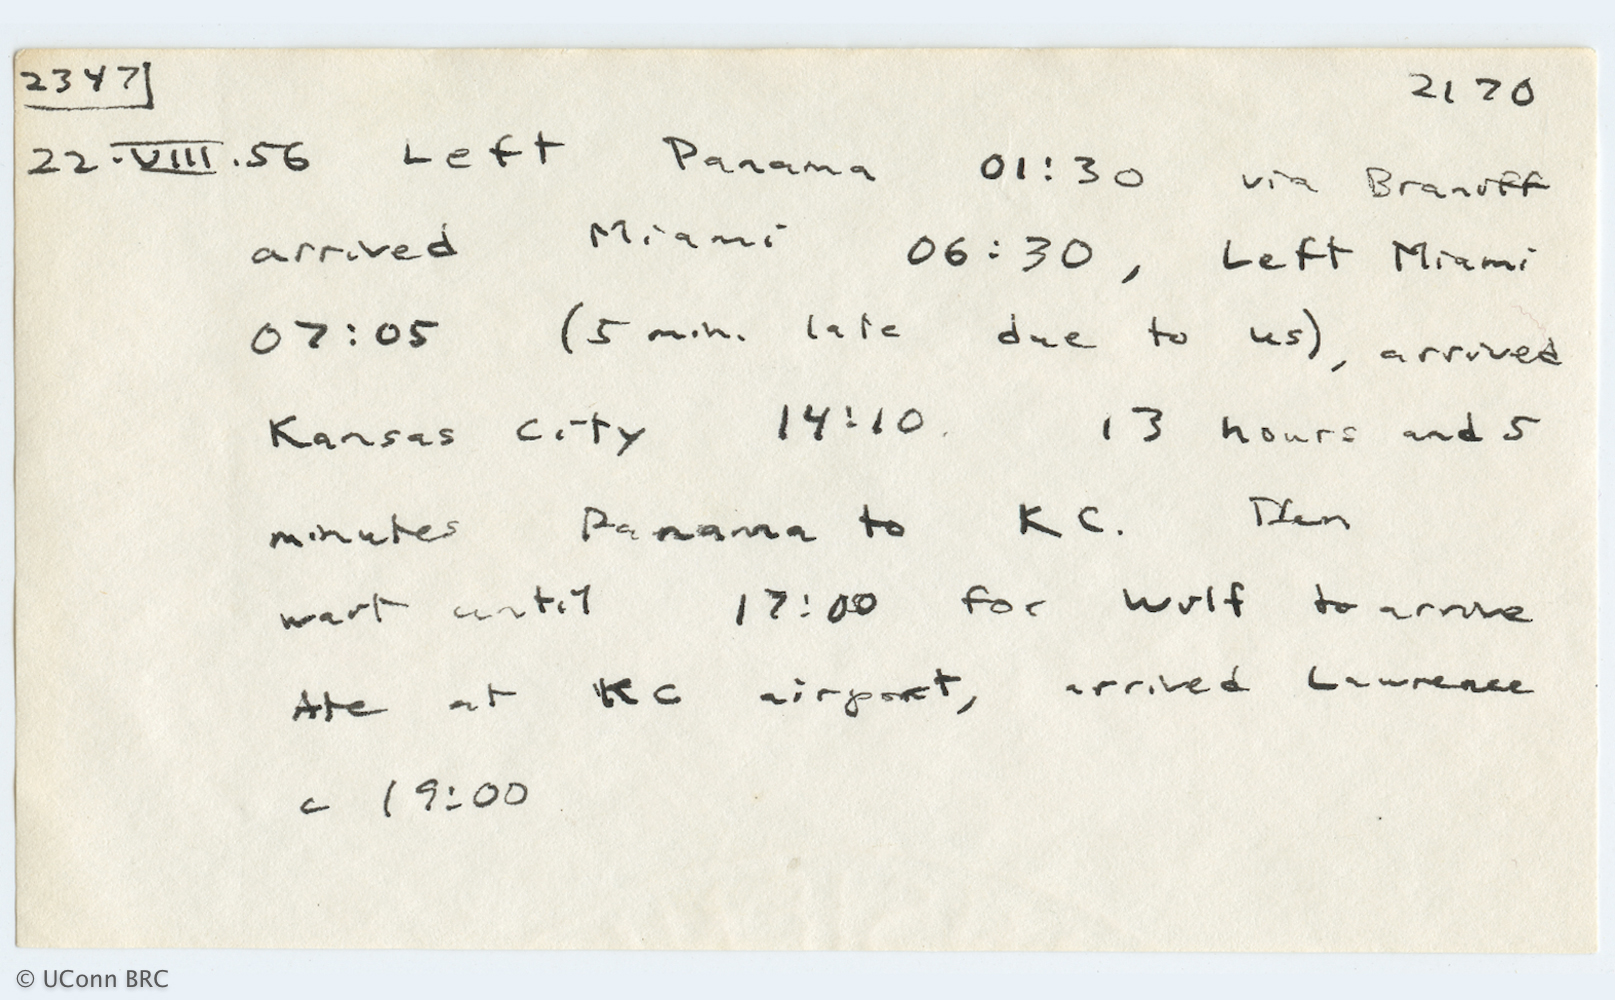 2347 2170
22.VIII.56 Left Panama 01:30 via Braniff
arrived Miami 06:30, Left Miami
07:05 (5 min. late due to us), arrived
Kansas City 14:10. 13 hours and 5
minutes Panama to KC. Then
wait until 17:00 for Wulf to arrive
Ate at KC airport, arrived Lawrence
c 19:00
© UConn BRC